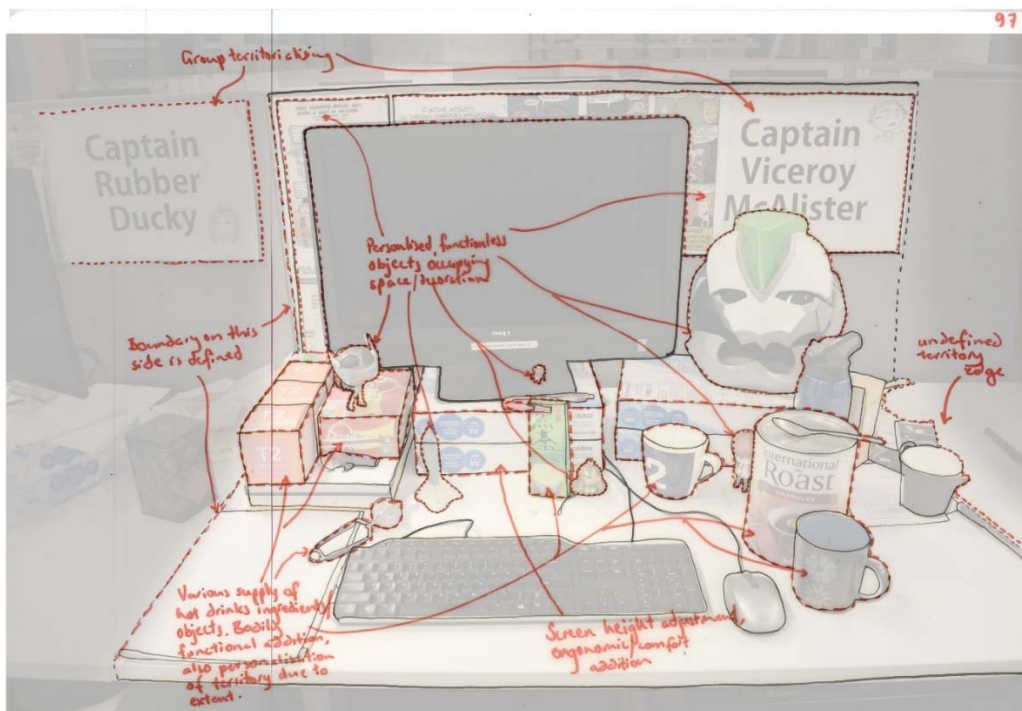 97
Group territorialising
Captain
Rubber
Ducky
Captain
Viceroy
McAlister
Personalised, functionless
objects occupying
space/decoration
Boundary on this
side is defined
undefined
territory
edge
T2
T2
T2
2
International
Roast
Various supply of
hot drinks ingredients/
objects. Basily
functional addition,
also personalisation
of territory due to
extent.
Screen height adjustment,
ergonomic/comfort
addition